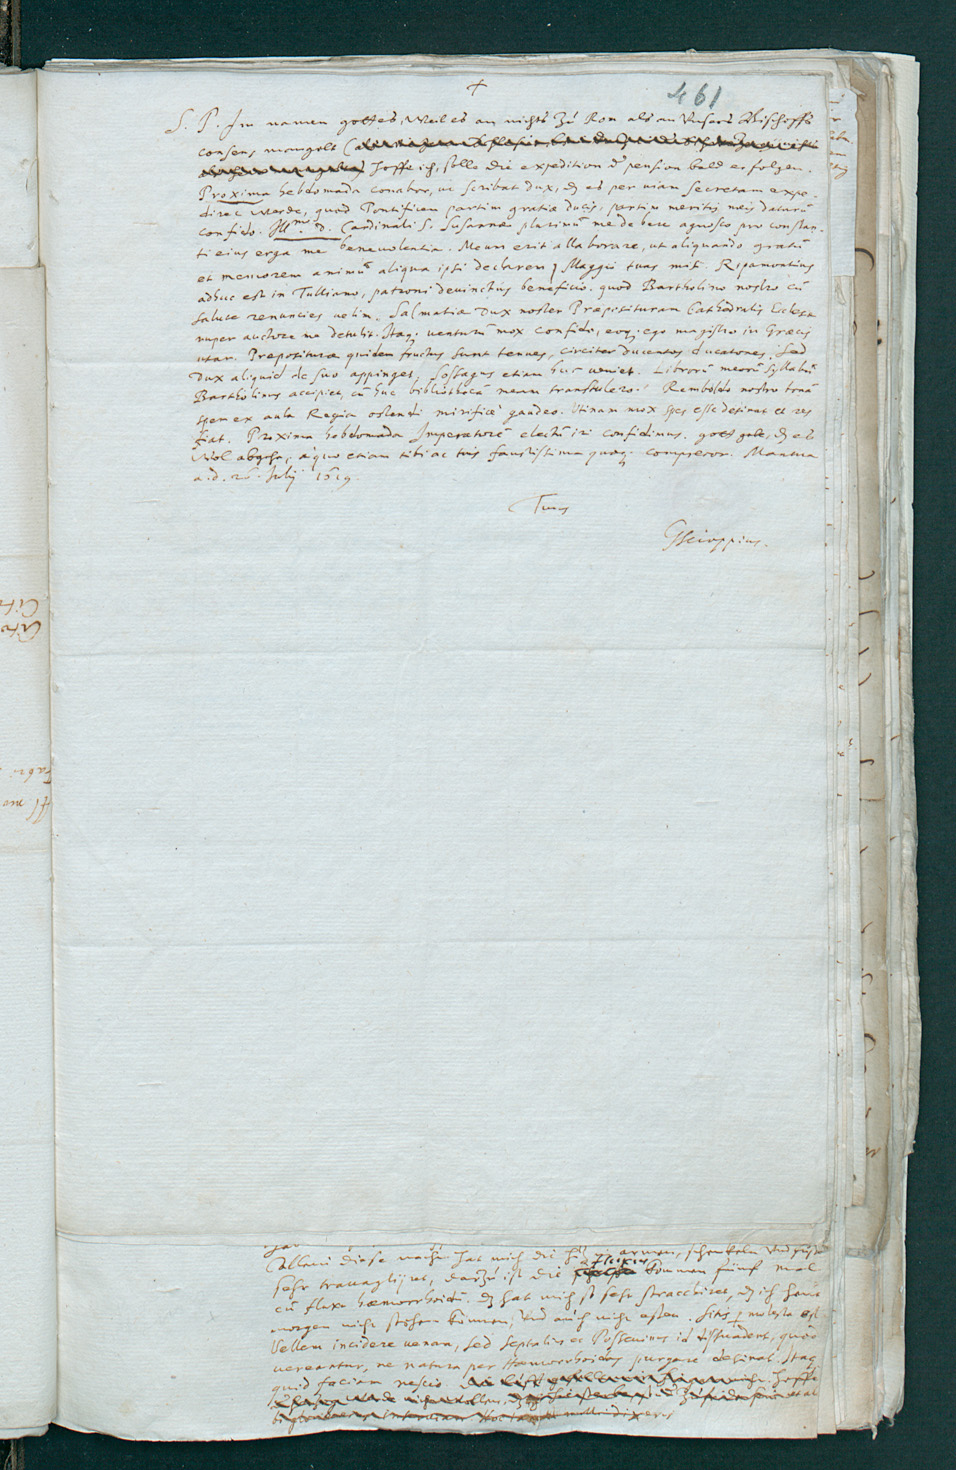 +
461
S. P. Im namen gottes, Weil es an nichts Zu Rom als an Unsers Bischoffs
consens mangelt
Hoffe ich, solle die expedition der pension bald erfolgen.
Proxima hebdomada conabor, ut scribat Dux, dz es per viam secretam expe-
dirt werde, quod Pontificem partim gratiæ Ducis, partim meritis meis daturū
confido. Ill.mo D. Cardinali S. Susannæ plurimū me debere agnosco pro constan-
ti eius erga me benevolentia. Meum erit allaborare, ut aliquando gratū
et memorem animū aliqua ipsi declarem. Maggii tuas misi. Ripamontius
adhuc est in Tulliano, patroni devinctus beneficio. quod Bartholino nostro cū
salute renuncies velim. Salmatiæ Dux noster Præposituram Cathedralis Ecclesiæ
nuper auctore me detulit. Itaq; venturū mox confido, eoq; ego magistro in Græcis
utar. Præposituræ quidem fructus sunt tenues, circiter ducentos ducatones. Sed
Dux aliquid de suo appinget. Sossagus etiam huc veniet. Librorū meorū syllabū
Bartholinus accipiet, cū huc bibliothecā meam transtulero. Remboldo nostro bonā
spem ex aula Regia ostendi mirificè gaudeo. Utinam mox spes esse desinat et res
fiat. Proxima hebdomada Imperatorē electū iri confidimus. gott gebe, dz es
Wol abgehe, à quo etiam tibi ac tuis faustissima quæq; comprecor. Mantua
a. d. 26. Julij 1619.
Tuus
GScioppius.
Allein diese nacht hat mich die armen, schenkeln Und füsse
sehr travaglijrt, darzu ist die kommen fünf mal
cū fluxu hæmorrhoidū. dz hat mich so sehr stracchirt, dz ich heut
morgen nicht stehen können, Und auch nicht essen. Sitis molesta est
Vellem incidere venam, sed Septalius et Possevinus id dissuadent, quòd
vereantur, ne natura per Hæmorrhoidas purgare desinat. Itaq
quid faciam nescio. Hoffe